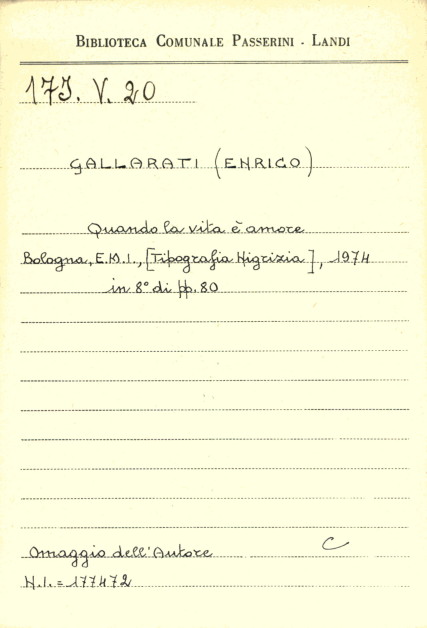 BIBLIOTECA COMUNALE PASSERINI - LANDI
17J. V. 20
GALLARATI (ENRICO)
Quando la vita è amore
Bologna, E.M.I., [Tipografia Nigrizia], 1974
in 8° di pp. 80
C
Omaggio dell'Autore
N.I. = 177472